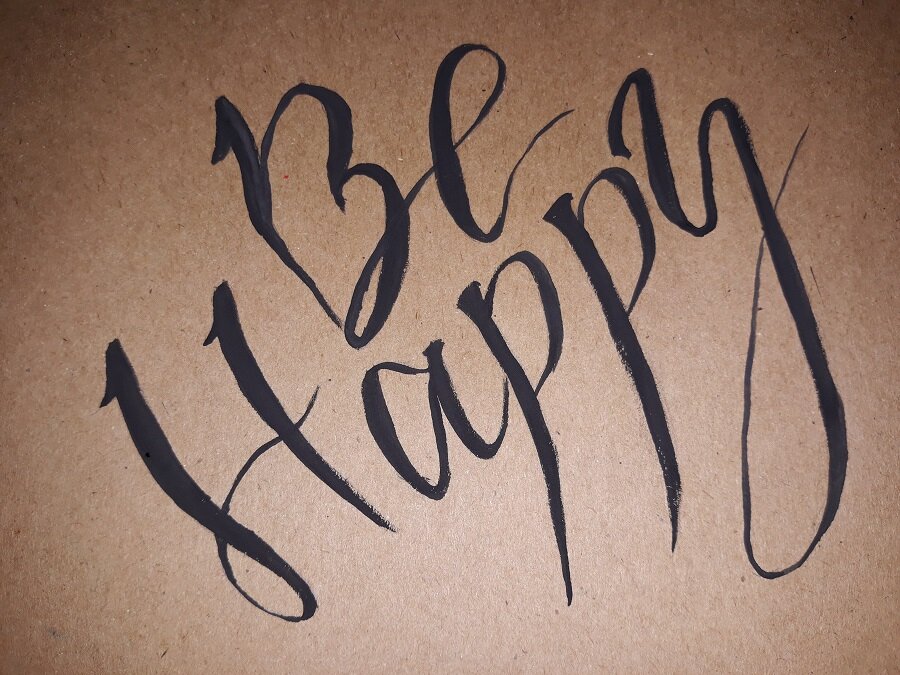 Be
Happy